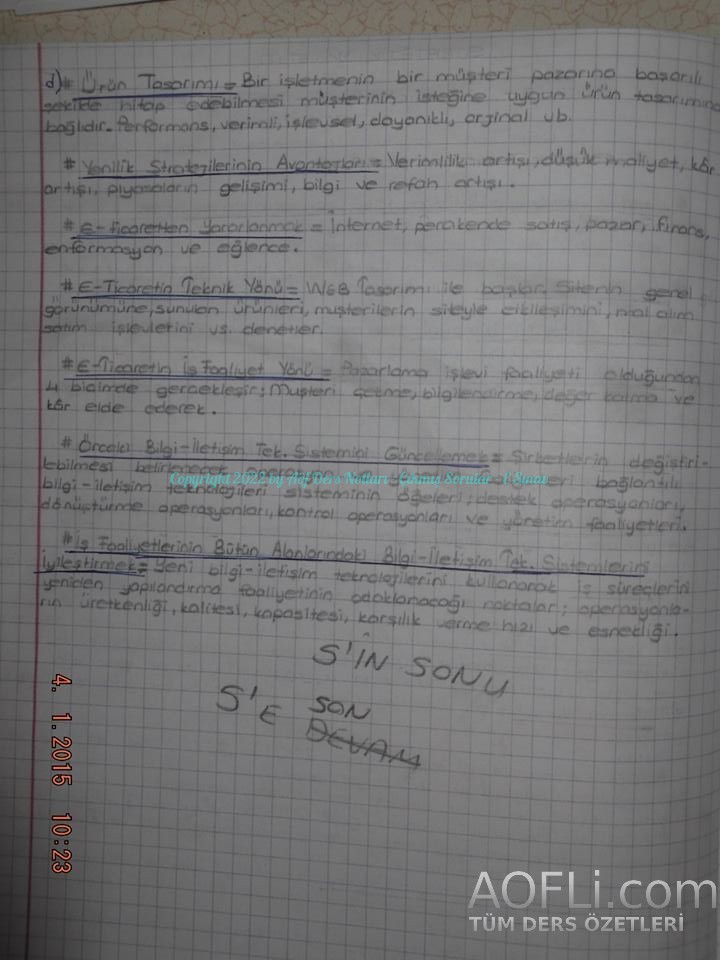 d)# Ürün Tasarımı = Bir işletmenin bir müşteri pazarına başarılı
şekilde hitap edebilmesi müşterinin isteğine uygun ürün tasarımına
bağlıdır. Performans, verimli, işlevsel, dayanıklı, orjinal vb.
# Yenilik Stratejilerinin Avantajları = Verimlilik artışı, düşük maliyet, kâr
artışı, piyasaların gelişimi, bilgi ve refah artışı.
# E-ticaretten Yararlanmak = İnternet, perakende satış, pazar, finans,
enformasyon ve eğlence.
# E-Ticaretin Teknik Yönü = WEB Tasarımı ile başlar. Sitenin genel
görünümüne, sunulan ürünleri, müşterilerin siteyle etkileşimini, mal alım
satım işlevlerini vs. denetler.
# E-Ticaretin İş Faaliyet Yönü = Pazarlama işlevi faaliyeti olduğundan
4 biçimde gerçekleşir; Müşteri çekme, bilgilendirme, değer katma ve
kâr elde ederek.
# Önceki Bilgi-İletişim Tek. Sistemini Güncellemek = Şirketlerin değiştiri-
lebilmesi belirlenecek operasyon ve yönetim bağlantılı
Copyright 2022 by Aöf Ders Notları Çıkmış Sorular
bilgi-iletişim teknolojileri sisteminin öğeleri; destek operasyonları,
dönüştürme operasyonları, kontrol operasyonları ve yönetim faaliyetleri.
# İş Faaliyetlerinin Bütün Alanlarındaki Bilgi-İletişim Tek. Sistemlerini
İyileştirmek = Yeni bilgi-iletişim teknolojilerini kullanarak iş süreçlerini
yeniden yapılandırma faaliyetinin odaklanacağı noktalar; operasyonla-
rın üretkenliği, kalitesi, kapasitesi, karşılık verme hızı ve esnekliği.
5'İN SONU
5'E SON
DEVAM
4. 1.2015 10:23
AOFLi.com
TÜM DERS ÖZETLERİ